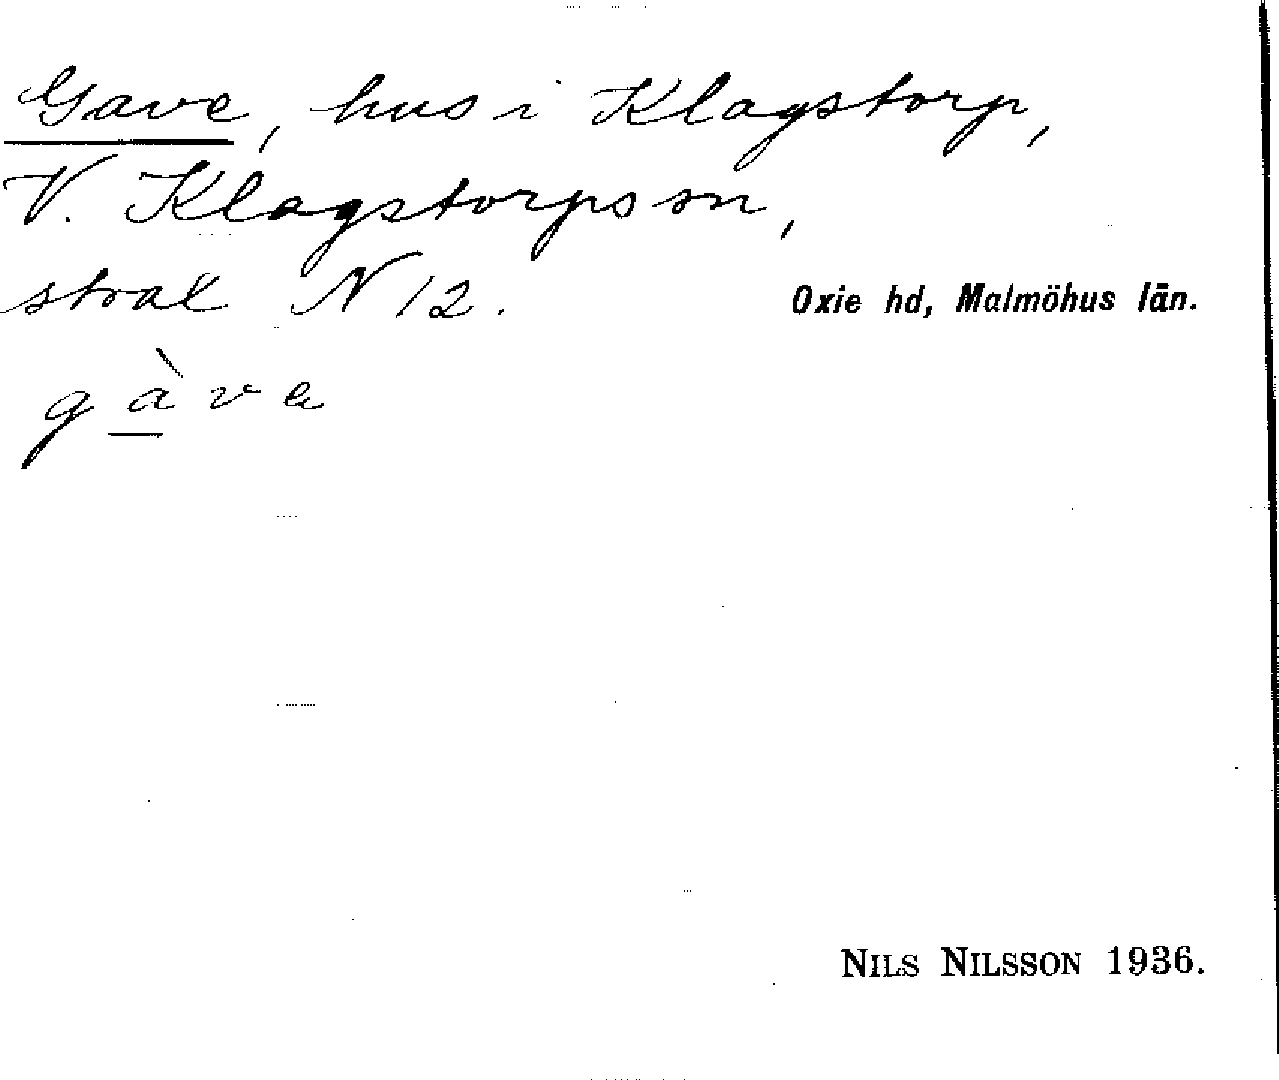 Gave, hus i Klagstorp,
V. Klagstorps sn,
strax N 12.
Oxie hd, Malmöhus län.
gàva
NILS NILSSON 1936.